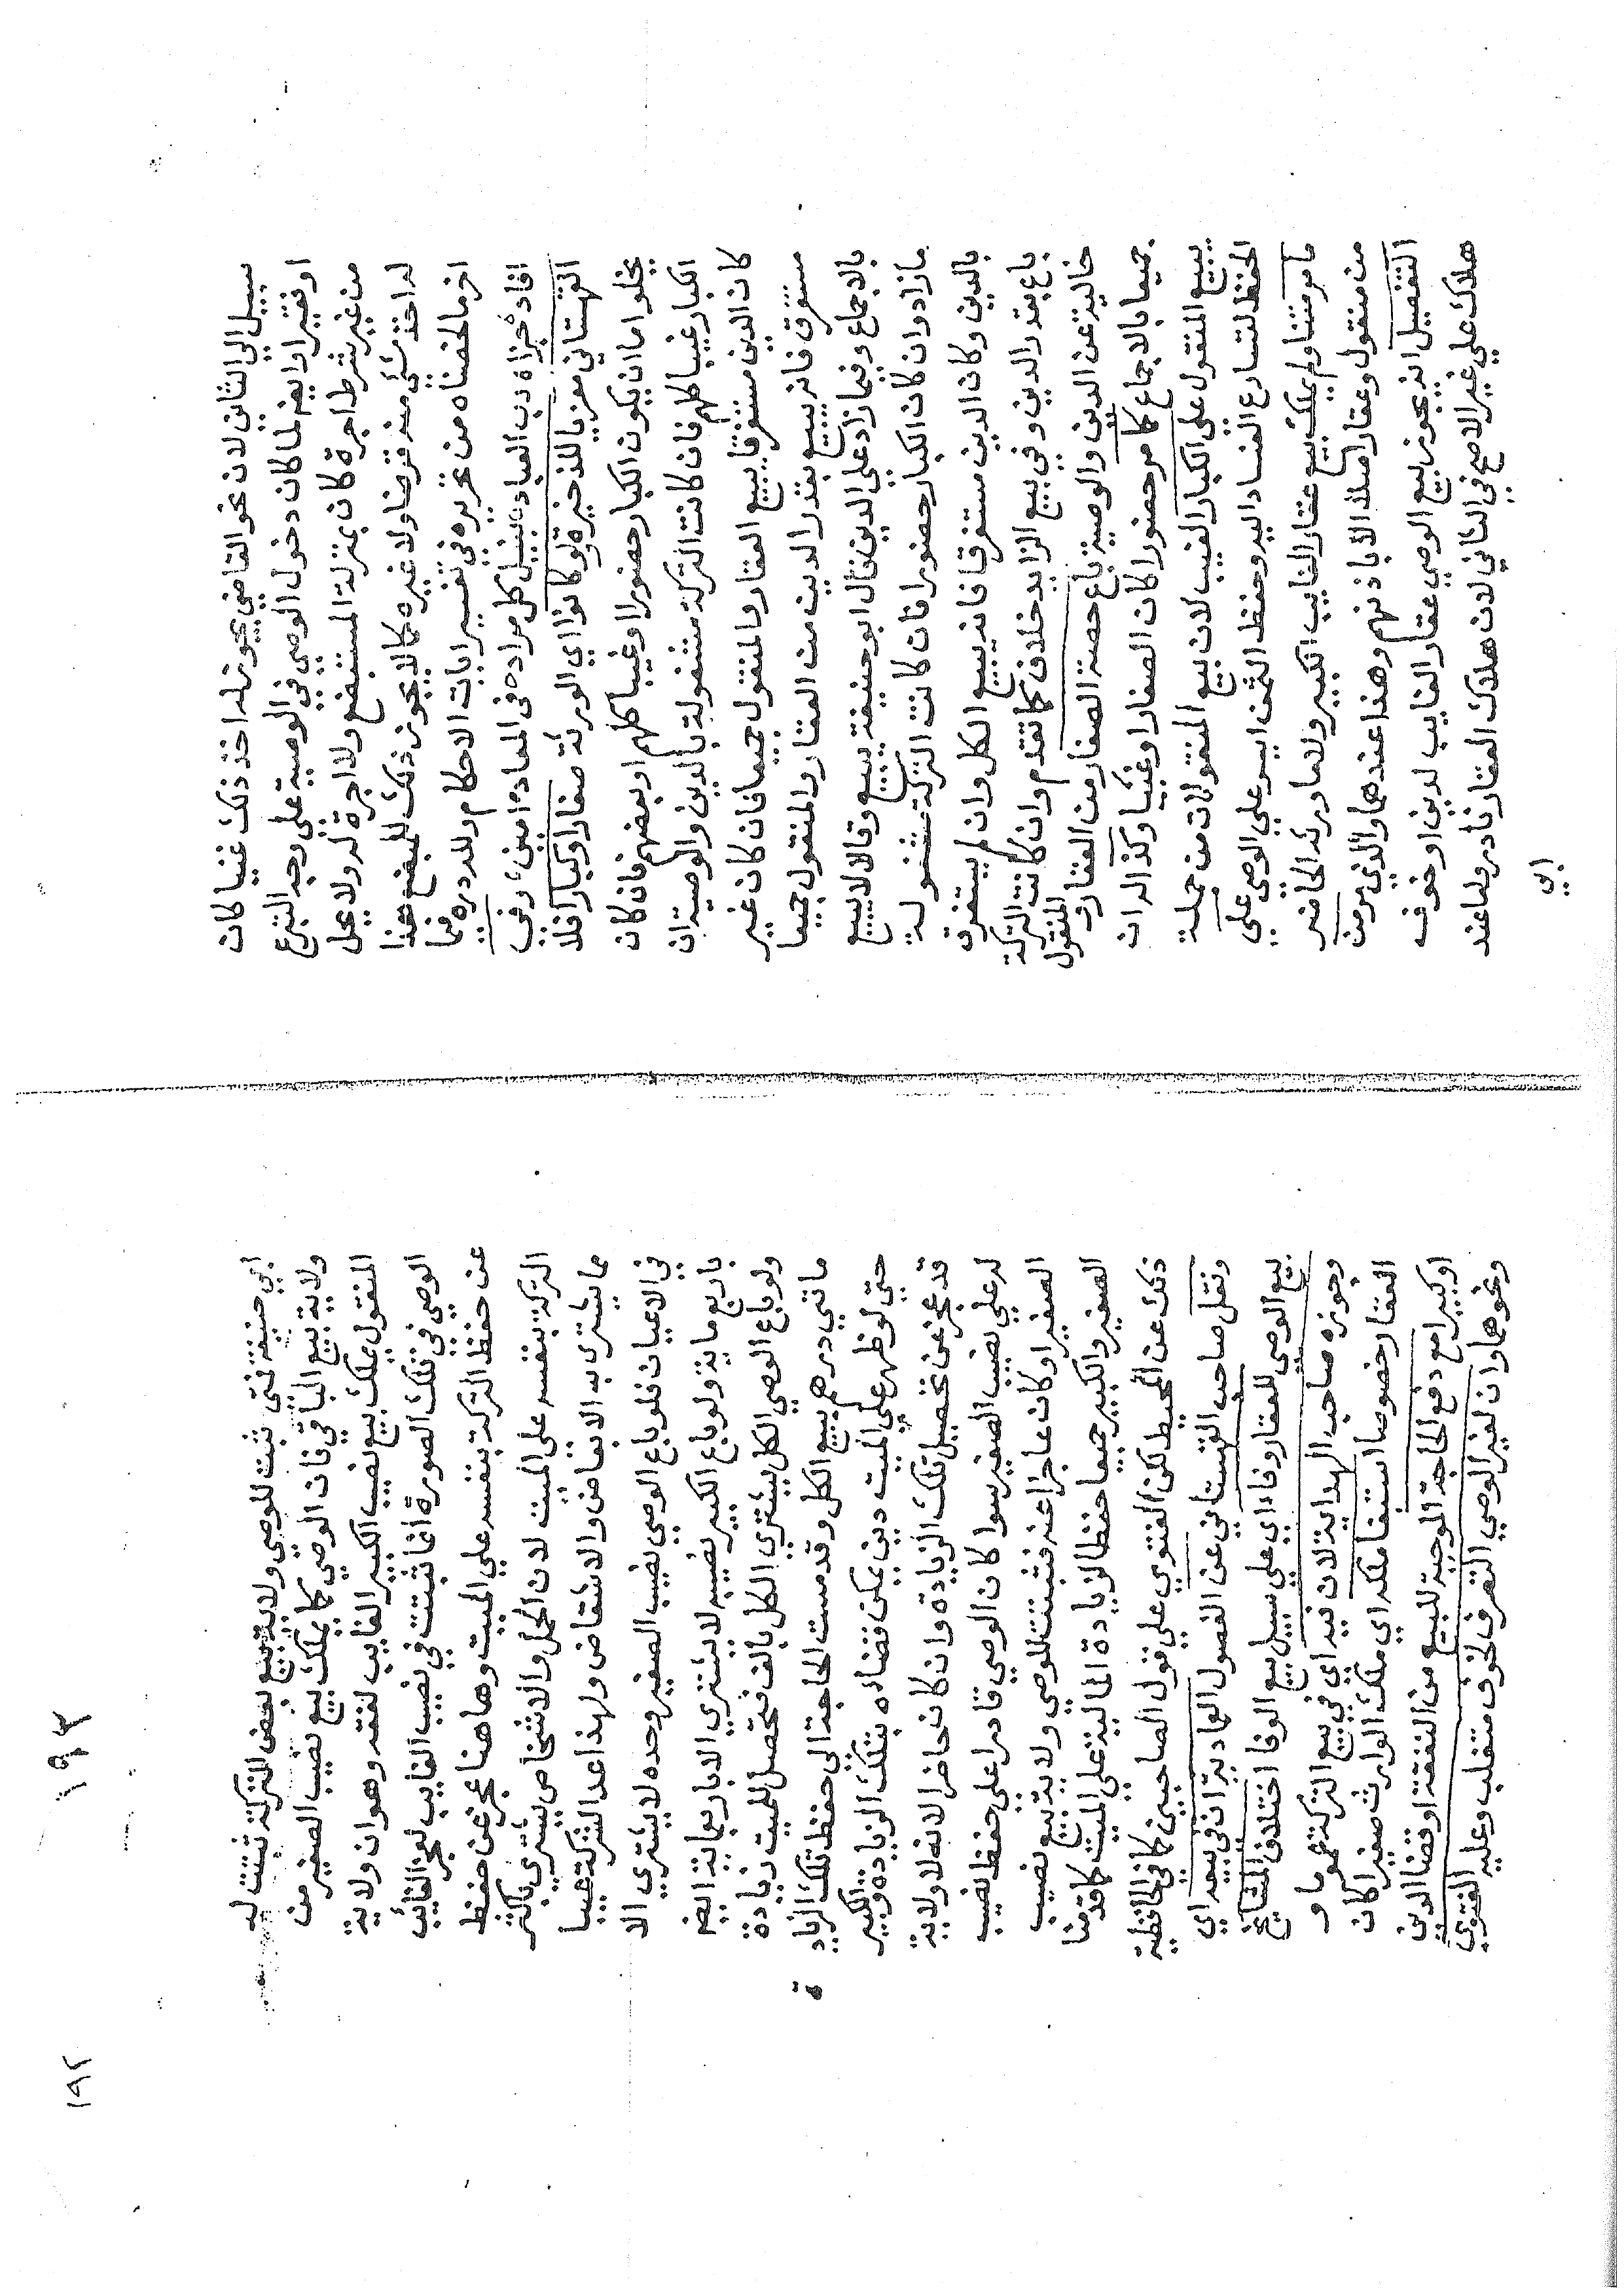 سبيل الي الثاني لان نحو القاضي يجوز له اخذ ذلك غنيا كان
او فقيرا وايضا لما كان دخول الوصي في الوصية علي وجه التبرع
من غير شرط اجرة كان بمنزلة المستبضع ولا اجرة له ولا يحل
له اخذ شئ منه قرضا ولا غيره كما لا يجوز ذلك للمبضع هذا
اخر ما لخصناه من تحريره في تفسير ايات الاحكام ولله دره فما
افاد جزاه رب العباد بنيل كل مراده في المعاد امين، وفي
القهستاني معزيا للذخيرة ولو كانوا اي الورثة صغارا وكبارا فلا
يخلوا اما ان يكون الكبار حضورا او غيبا كلهم او بعضهم فان كان
الكبار غيبا كلهم فان كانت التركة مشغولة بالدين والوصية ان
كان الدين مستغرقا يبيع العقار والمنقول جميعا فان كان غير
مستغرق فانه يبيع بقدر الدين من العقار والمنقول جميعا
بالاجماع وفيما زاد علي الدين قال ابو حنيفة يبيع وقالا لا يبيع
ما زاد وان كان الكبار حضورا فان كانت التركة مشغولة
بالدين وكان الدين مستغرقا فانه يبيع الكل وان لم يستغرق
باع بقدر الدين وفي بيع الزايد خلاف كما تقدم وان كانت التركة
خالية عن الدين والوصية باع حصة الصغار من العقار والمنقول
جميعا بالاجماع كما مر حضورا كان الصغار او غيبا وكذا له ان
يبيع المنقول علي الكبار الغيب لان بيع المنقولات من جملة
الحفظ لتسارع الفساد اليه وحفظ الثمن ايسر علي الوصي علي
ما مر متنا ولم يملك بيع عقار الغايب الكبير ولا ما ورثه الحاضر
من منقول وعقار اصلا الا باذنهم وهذا عندهما والذي مر من
التفصيل انه يجوز بيع الوصي عقار الغايب لدين او خوف
هلاك علي غير الاصح في الثاني لان هلاك العقار نادر ولما عند
ابي
١٩٣
١٩٢
ابي حنيفة فمتي ثبت للوصي ولاية بيع بعض التركة تثبت له
ولاية بيع الباقي فان الوصي كما يملك بيع نصيب الصغير من
المنقول يملك بيع نصيب الكبير الغايب لفقد وهو ان ولاية
الوصي في تلك الصورة انما تثبت في نصيب الغايب لعجز الغائب
عن حفظ التركة بنفسه علي الميت وها هنا عجز عن حفظ
التركة بنفسه على الميت لان الحمل والاشخاص يشتري باكثر
مما يشتري به الابعاض والاشقاص ولهذا عد الشركة عيبا
في الاعيان فلو باع الوصي نصيب الصغير وحده لا يشتري الا
باربع ماية ولو باع الكبير نصيبه لا يشتري الا باربعماية ايضا
ولو باع الوصي الكل يشتري الكل بالف فتحصل للميت زيادة
مائتي درهم يبيع الكل وقد مست الحاجة الى حفظ تلك الزيادة
حتي لو ظهر علي الميت دين يمكن قضاه بتلك الزيادة والكبير
قد عجز عن تحصيل تلك الزيادة وان كان حاضرا لانه لا ولاية
له علي نصيب الصغير سوا كان الوصي قادرا علي حفظ نصيب
الصغير او كان عاجزا عنه فتثبت للوصي ولاية بيع نصيب
الصغير والكبير جميعا حفظا لزيادة المالية علي الميت كما قدمنا
ذلك عن المحيط لكن الفتوي علي قول الصاحبين كما في الحافظية
ونقل صاحب القهستاني عن الفصول العمادية ان في بيعه اي
بيع الوصي للعقار وفاء اي علي سبيل بيع الوفا اختلاف المشايخ
وجوزه صاحب الهداية لان فيه اي في بيع التركة عموما و
العقار خصوصا استبقا ملكه اي ملك الوارث صغيرا كان
او كبيرا مع دفع الحاجة الموجبة للبيع من النفقة او قضا الدين
ونحوهما وان لغير الوصي التصرف لخوف متغلب وعليه الفتوي